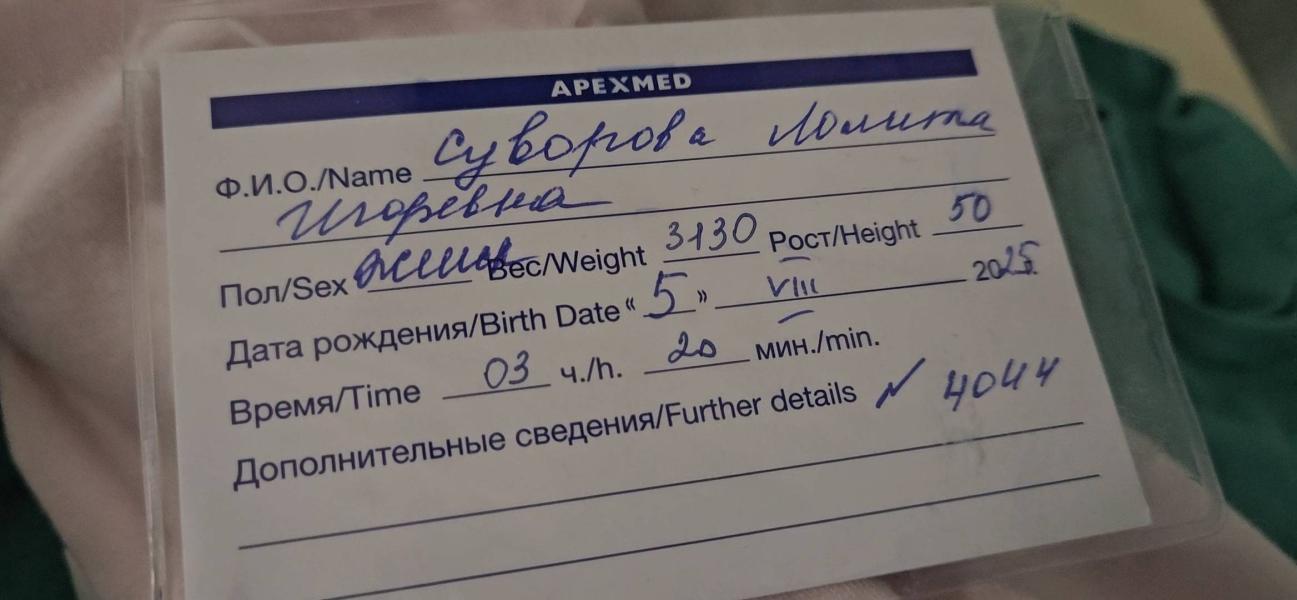 APEXMED
Ф.И.О./Name Суворова Лолита
Игоревна
Пол/Sex жен Вес/Weight 3130 Рост/Height 50
Дата рождения/Birth Date “ 5 ” VIII 2025.
Время/Time 03 ч./h. 20 мин./min.
Дополнительные сведения/Further details N 4044